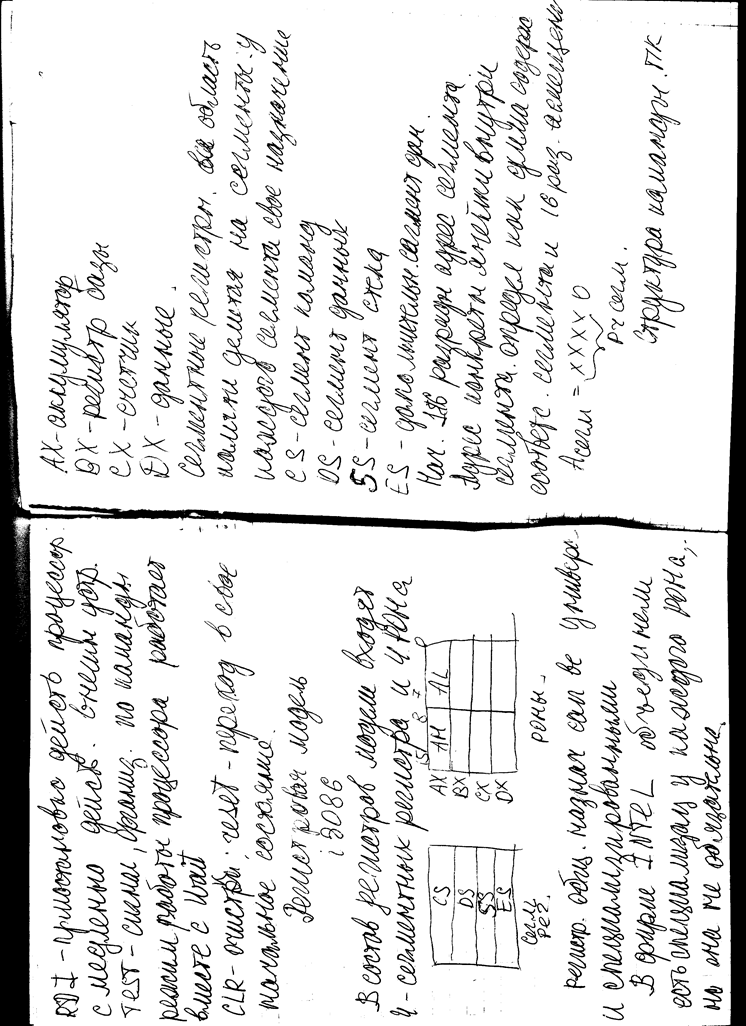 RDI - приостановка действ процессор
с медленно действ. внешн устр.
TEST - схемы, организ. по команды
режим работы процессора работает
вместе с Wait
CLR - очистка. reset - переход в свое
начальное состояние.
Регистровая модель
i 8086
В состав регистров модели входят
4 - сегментных регистра и 4 РОНа
CS
DS
SS
ES
сегм
рег.
15 8 7 0
AX AH AL
BX
CX
DX
РОНы.
регистр. общ. назнач
и специализированными
В фирме INTEL объединели
есть специализац у каждого рона,
но она не обязательна.
AX - аккумулятор
BX - регистр базы
CX - счетчик
DX - данные.
Сегментные регистры. Вся область
памяти делится на сегменты. У
каждого сегмента свое назначение
CS - сегмент команд
DS - сегмент данных
SS - сегмент стека
ES - дополнительн. сегмент дан.
Нач. разрядн адрес сегмента
Адрес конкретн ячейки внутри
сегмента определ как сумма содерж
соответс. сегмента и 16 раз. смещени
Асегм = XXXX 0
Рг сегм.
Структура команды. ПК